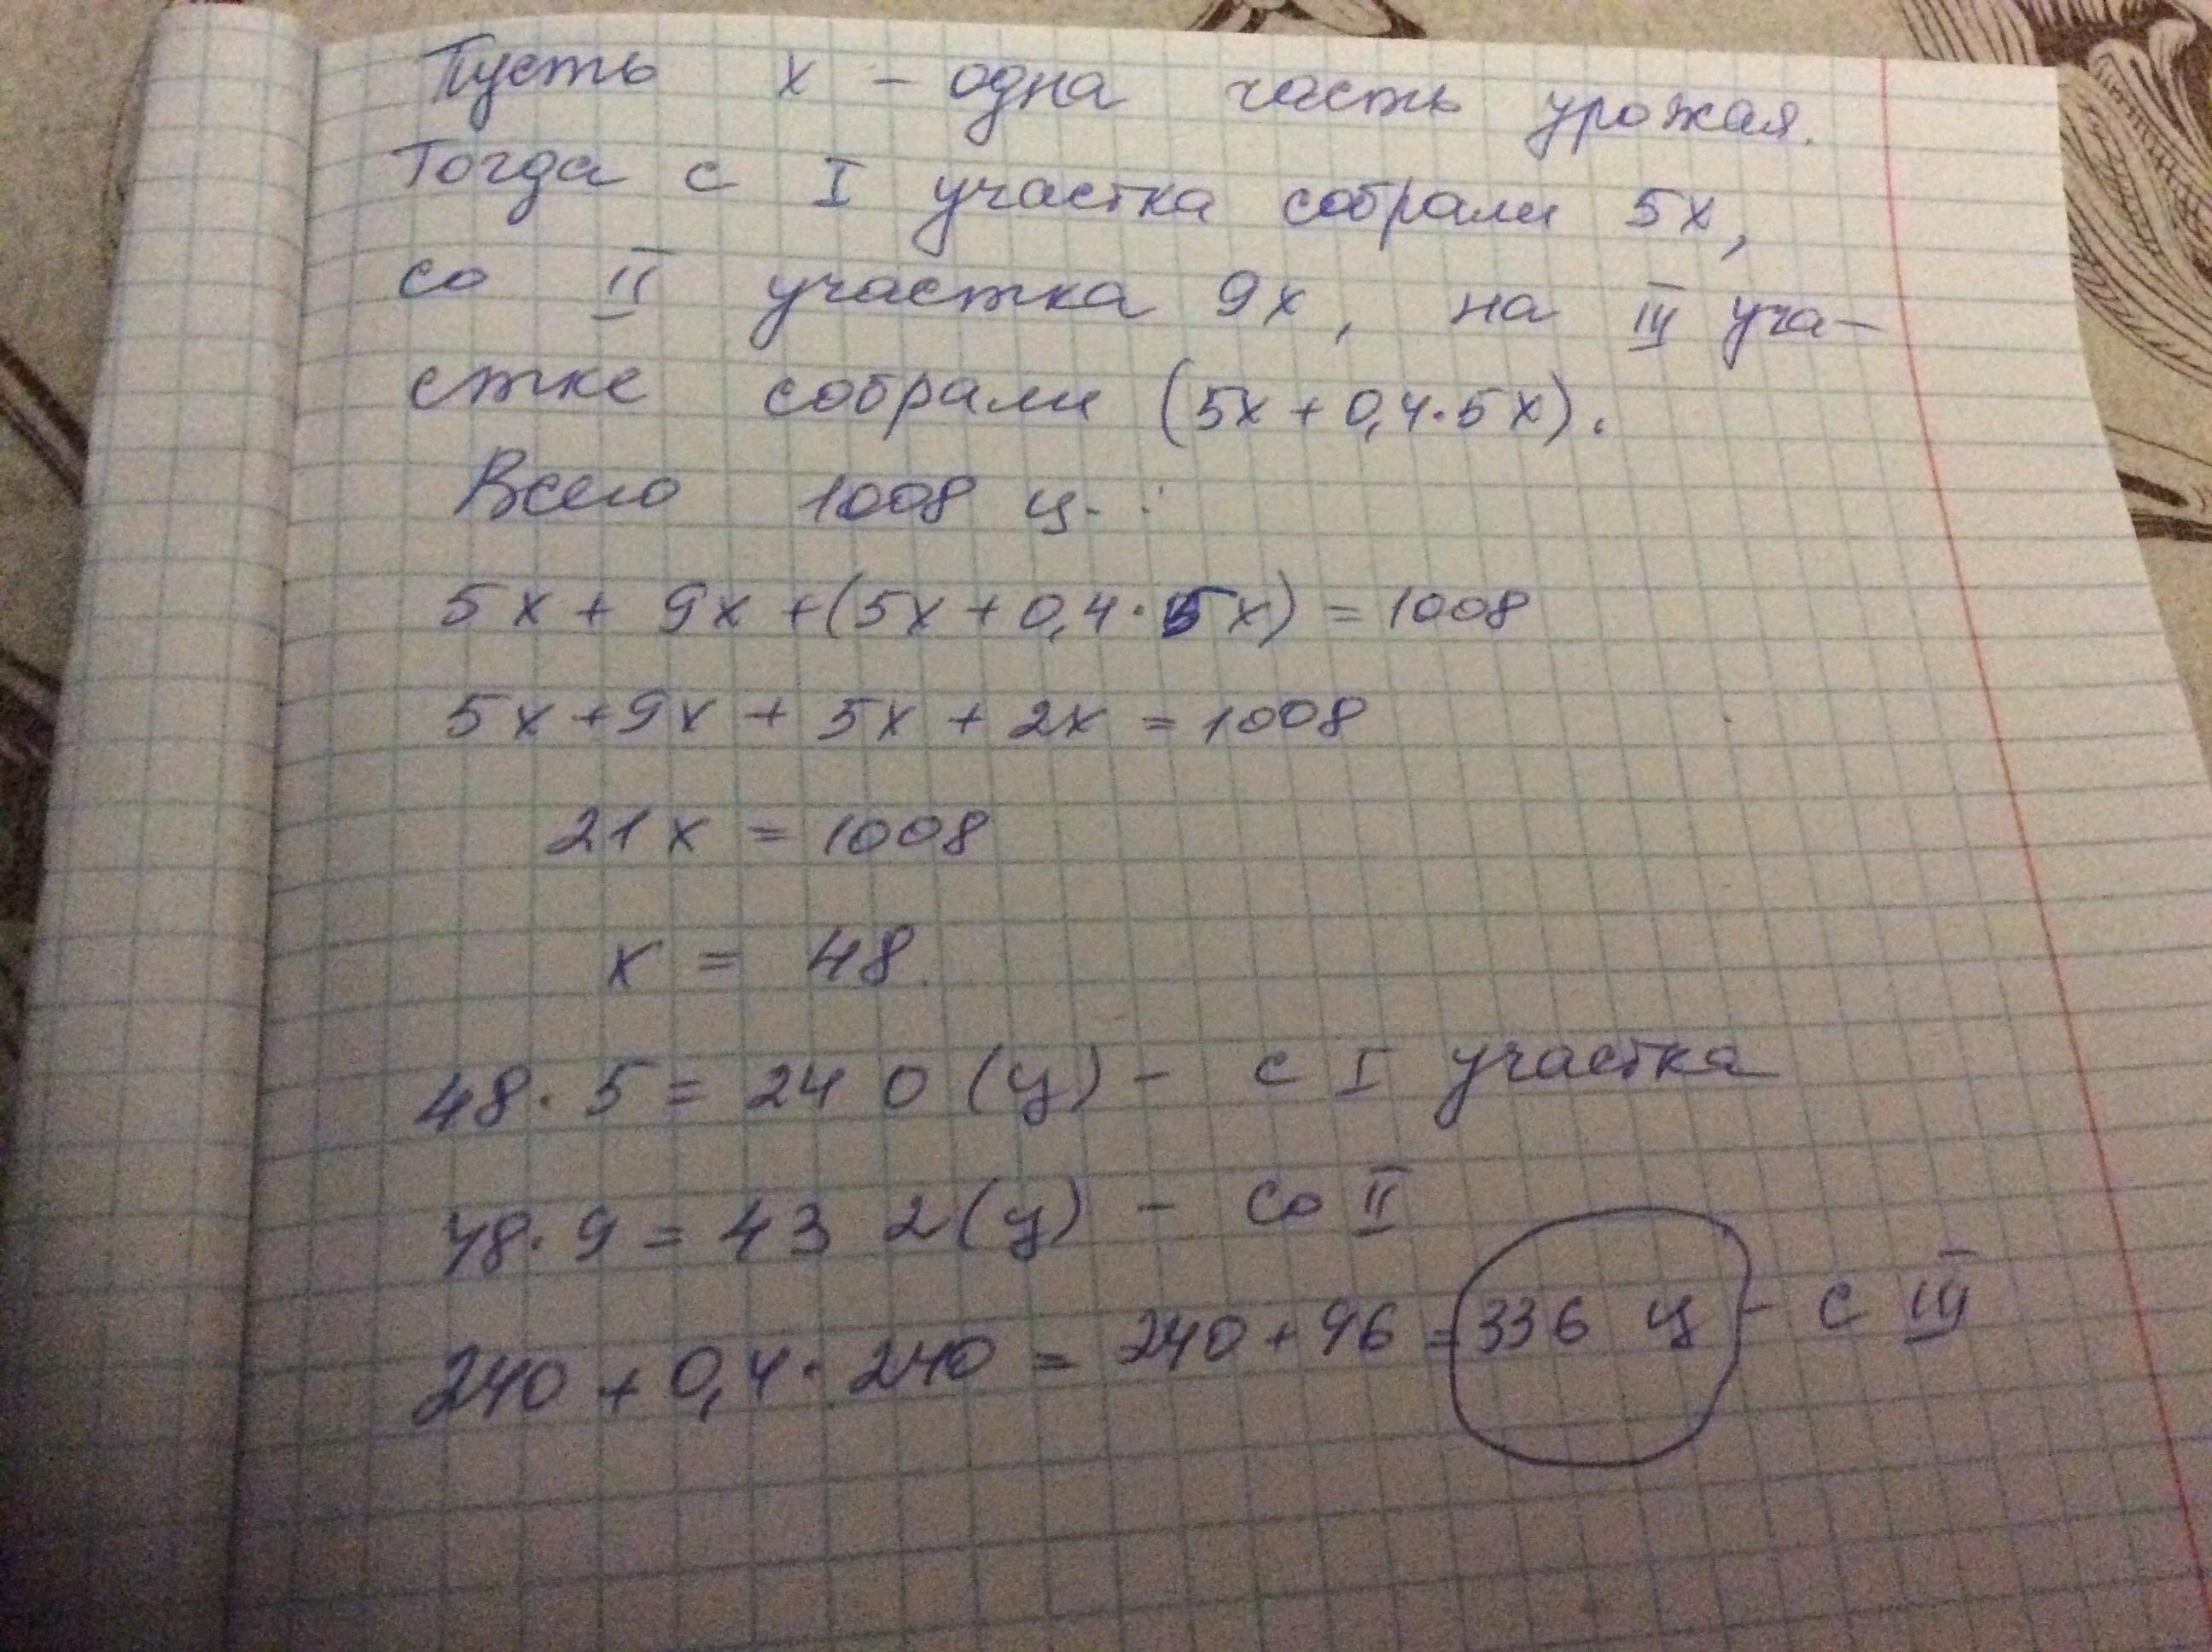 Пусть х - одна часть урожая.
Тогда с I участка собрали 5х,
со II участка 9х, на III уча-
стке собрали (5х+0,4·5х).
Всего 1008 ц. :
5х + 9х +(5х+0,4·5х) = 1008
5х+9х + 5х + 2х = 1008
21х = 1008
х = 48
48·5 = 240 (ц) - с I участка
48·9 = 432 (ц) - со II
240 + 0,4·240 = 240+96 = 336 ц - с III